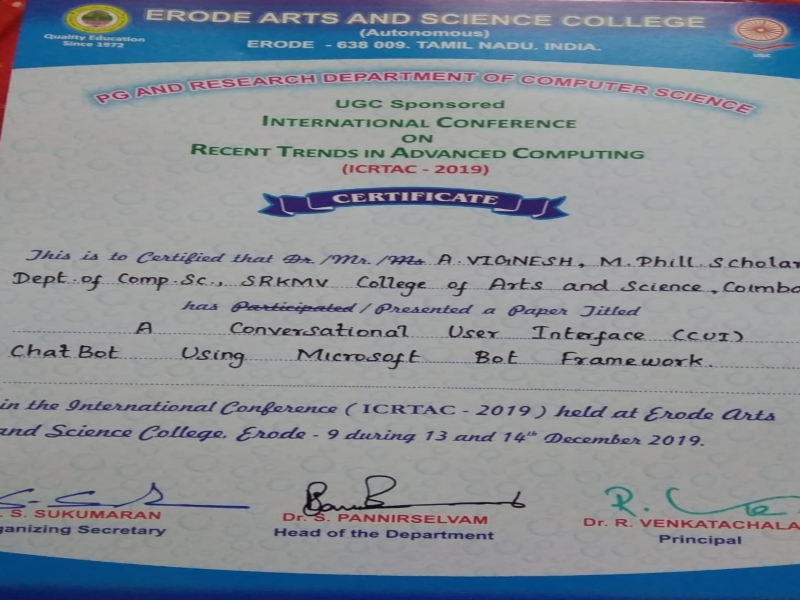 ERODE ARTS AND SCIENCE COLLEGE
(Autonomous)
Quality Education
Since 1972
ERODE - 638 009. TAMIL NADU. INDIA.
UGC
PG AND RESEARCH DEPARTMENT OF COMPUTER SCIENCE
UGC Sponsored
INTERNATIONAL CONFERENCE
ON
RECENT TRENDS IN ADVANCED COMPUTING
(ICRTAC - 2019)
CERTIFICATE
This is to Certified that Dr. /Mr. /Ms A. VIGNESH, M. Phill Scholar
Dept. of Comp. Sc., SRKMV College of Arts and Science, Coimba
has Participated / Presented a Paper Titled
A Conversational User Interface (CUI)
ChatBot Using Microsoft Bot Framework.
in the International Conference (ICRTAC - 2019) held at Erode Arts
and Science College, Erode - 9 during 13 and 14th December 2019.
. S. SUKUMARAN
ganizing Secretary
Dr. S. PANNIRSELVAM
Head of the Department
R. Ve
Dr. R. VENKATACHALA
Principal